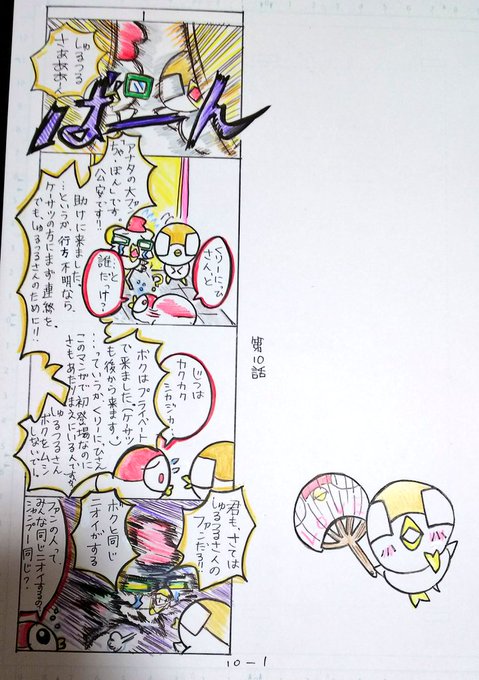 第10話
しゅるつる
ばーん
アナタの大ファン
「ちゃ・ぽん」です。
公安です!!
助けに来ました。
…というか行方不明なら、
ケーサツの方にまず連絡を、
でも、しゅるつるさんのために!!
さん、と
…と
誰だっけ?
じつは
カクカク
シカジカ
ボクはプライベート
で来ました。(ケーサツ
も後から来ます。)
このマンガ初登場なのに
さもあたりまえにいる人ですが
しゅるつるさん
ボクをムシ
しないで。
君も、さては
しゅるつるさんの
ファンだろ!!
ボクと同じ
ニオイがする
ファンの人って
みんな同じニオイするの?
シャンプー同じ?
10-1